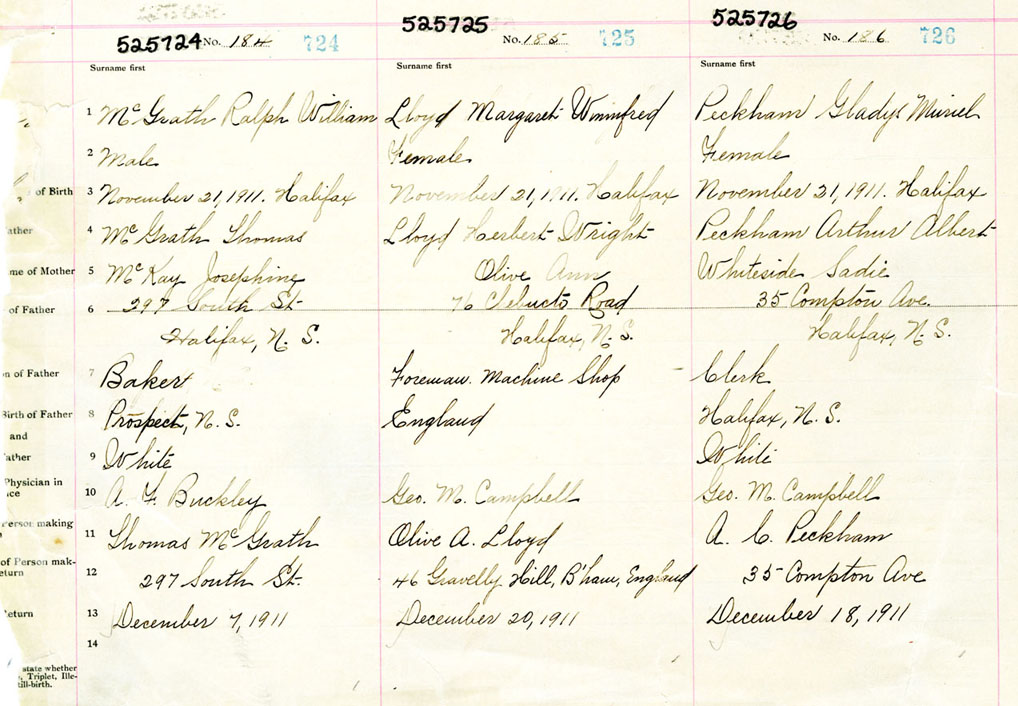 525724 No. 184 724
525725 No. 185 125
525726 No. 186 726
Surname first Surname first Surname first
1 McGrath Ralph William Lloyd Margaret Winnifred Peckham Gladys Muriel
2 Male Female Female
of Birth 3 November 21, 1911. Halifax November 21, 1911. Halifax November 21, 1911. Halifax
ather 4 McGrath Thomas Lloyd Herbert Wright Peckham Arthur Albert
me of Mother 5 McKay Josephine Olive Ann Whiteside Sadie
of Father 6 297 South St. 76 Chebucto Road 35 Compton Ave.
Halifax, N. S. Halifax, N. S. Halifax, N. S.
n of Father 7 Baker Foreman. Machine Shop Clerk
Birth of Father 8 Prospect, N. S. England Halifax, N. S.
and
ather 9 White White
Physician in
nce 10 A. F. Buckley Geo. M. Campbell Geo. M. Campbell
Person making
11 Thomas McGrath Olive A. Lloyd A. C. Peckham
of Person mak-
eturn 12 297 South St. 46 Gravelly Hill, B'ham, England 35 Compton Ave
eturn 13 December 7, 1911 December 20, 1911 December 18, 1911
14
state whether
, Triplet, Ille-
till-birth.